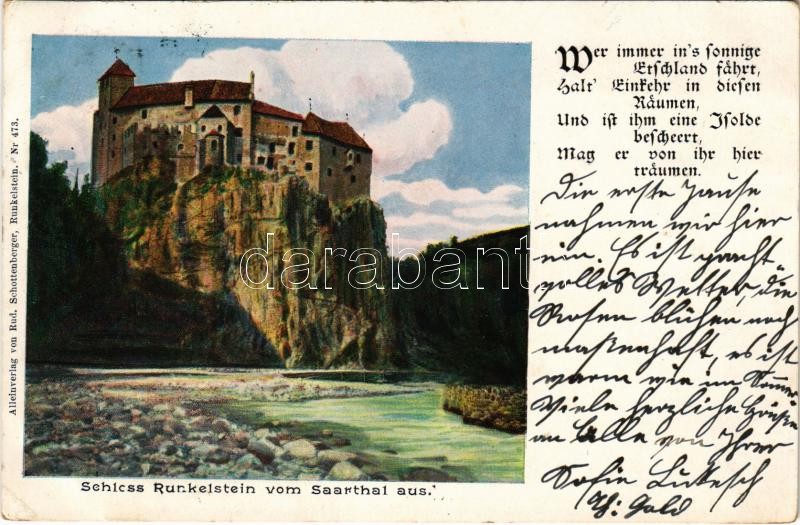 Wer immer in's sonnige
Etschland fährt,
Halt' Einkehr in diesen
Räumen,
Und ist ihm eine Isolde
bescheert,
Mag er von ihr hier
träumen.
Die erste Jause
nahmen wir hier
ein. Es ist pracht
volles Wetter, die
Rosen blühen noch
massenhaft, es ist
warm wie im Sommer
Viele herzliche Grüße
an Alle von Ihrer
Sofie
Gold
Alleinverlag von Rud. Schottenberger, Runkelstein. Nr 473.
darabanth
Schloss Runkelstein vom Saarthal aus.